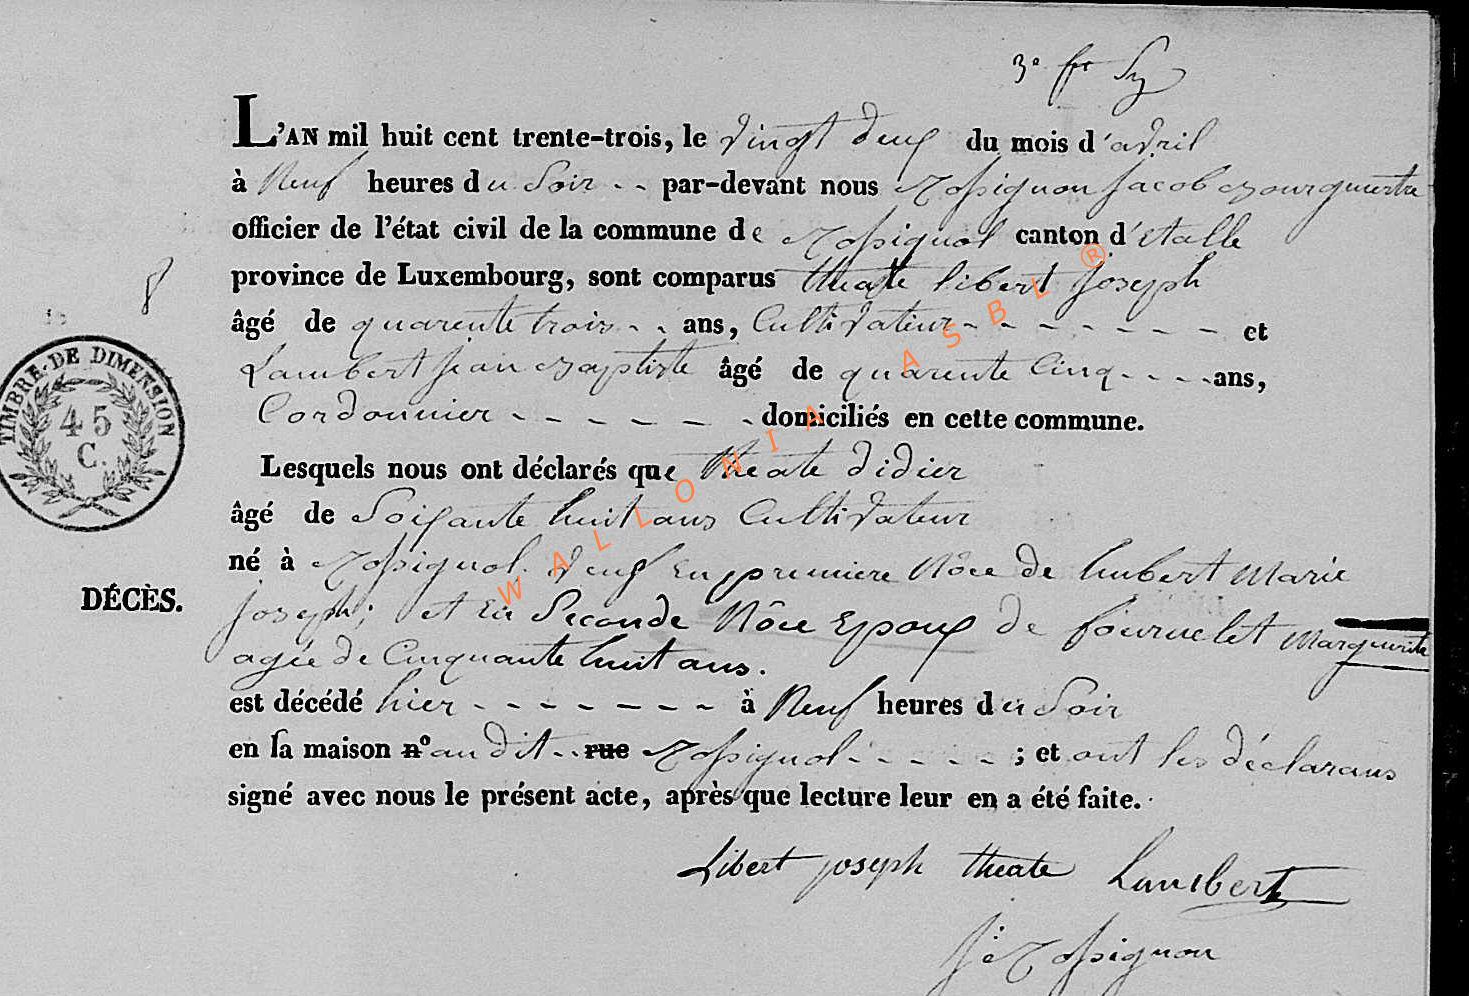 L'AN mil huit cent trente-trois, le vingt deux du mois d'avril
à Neuf heures du Soir par-devant nous Rossignon Jacob Bourguestre
officier de l'état civil de la commune de Rossignol canton d'Etalle
province de Luxembourg, sont comparus theate libert Joseph
8
âgé de quarente trois ans, Cultivateur et
Lambert Jean Baptiste âgé de quarente Cinq ans,
Cordonnier domiciliés en cette commune.
TIMBRE-DE DIMENSION
45
C.
Lesquels nous ont déclarés que theate didier
âgé de Soixante huit ans Cultivateur
né à Rossignol. Veuf En premiere Nôce de hubert Marie
DÉCÈS.
Joseph; et En Seconde Nôce Epoux de fournelet Marguerite
agée de Cinquante huit ans.
est décédé hier à Neuf heures du Soir
en sa maison nº audit rue Rossignol ; et ont les déclarans
signé avec nous le présent acte, après que lecture leur en a été faite.
Libert joseph theate Lambert
J Rossignon
WALLONIA ASBL ®